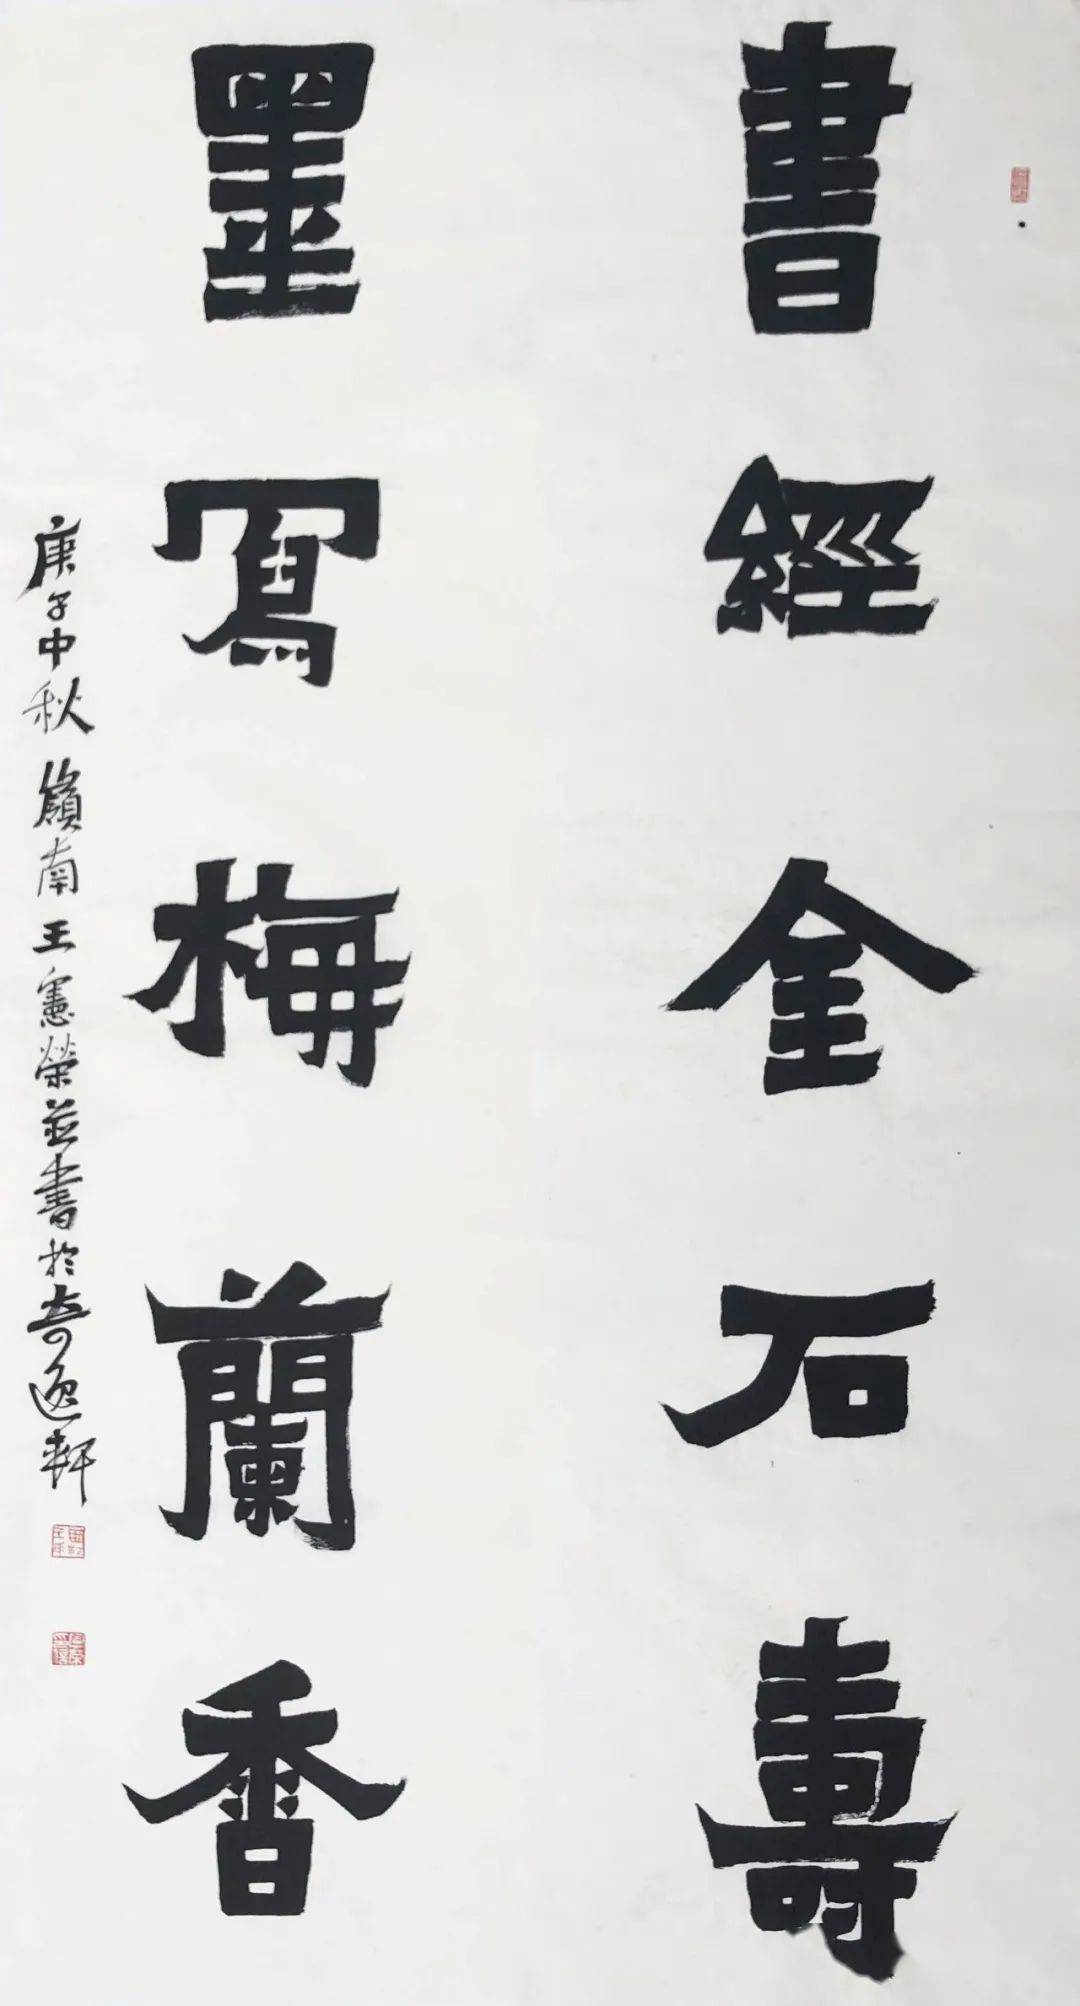 書經金石壽
墨寫梅蘭香
庚子中秋嶺南王憲榮並書於奇逸軒